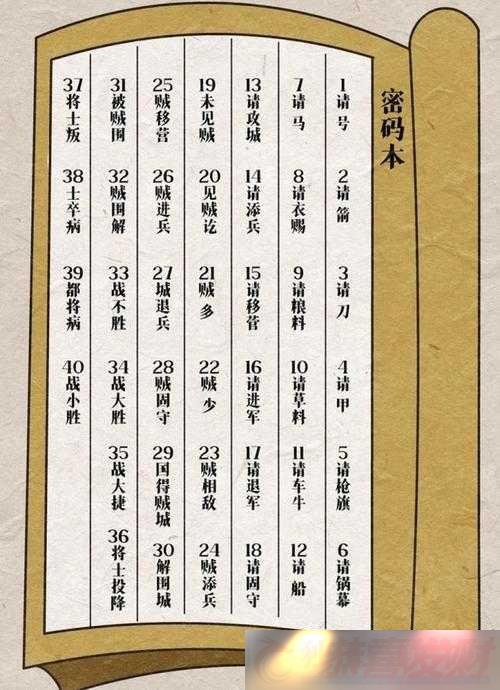 密码本
1请号
2请箭
3请刀
4请甲
5请枪旗
6请锅幕
7请马
8请衣赐
9请粮料
10请草料
11请车牛
12请船
13请攻城
14请添兵
15请移营
16请进军
17请退军
18请固守
19未见贼
20见贼讫
21贼多
22贼少
23贼相敌
24贼添兵
25贼移营
26贼进兵
27城退兵
28贼固守
29国得贼城
30解围城
31被贼围
32贼围解
33战不胜
34战大胜
35战大捷
36将士投降
37将士叛
38士卒病
39都将病
40战小胜